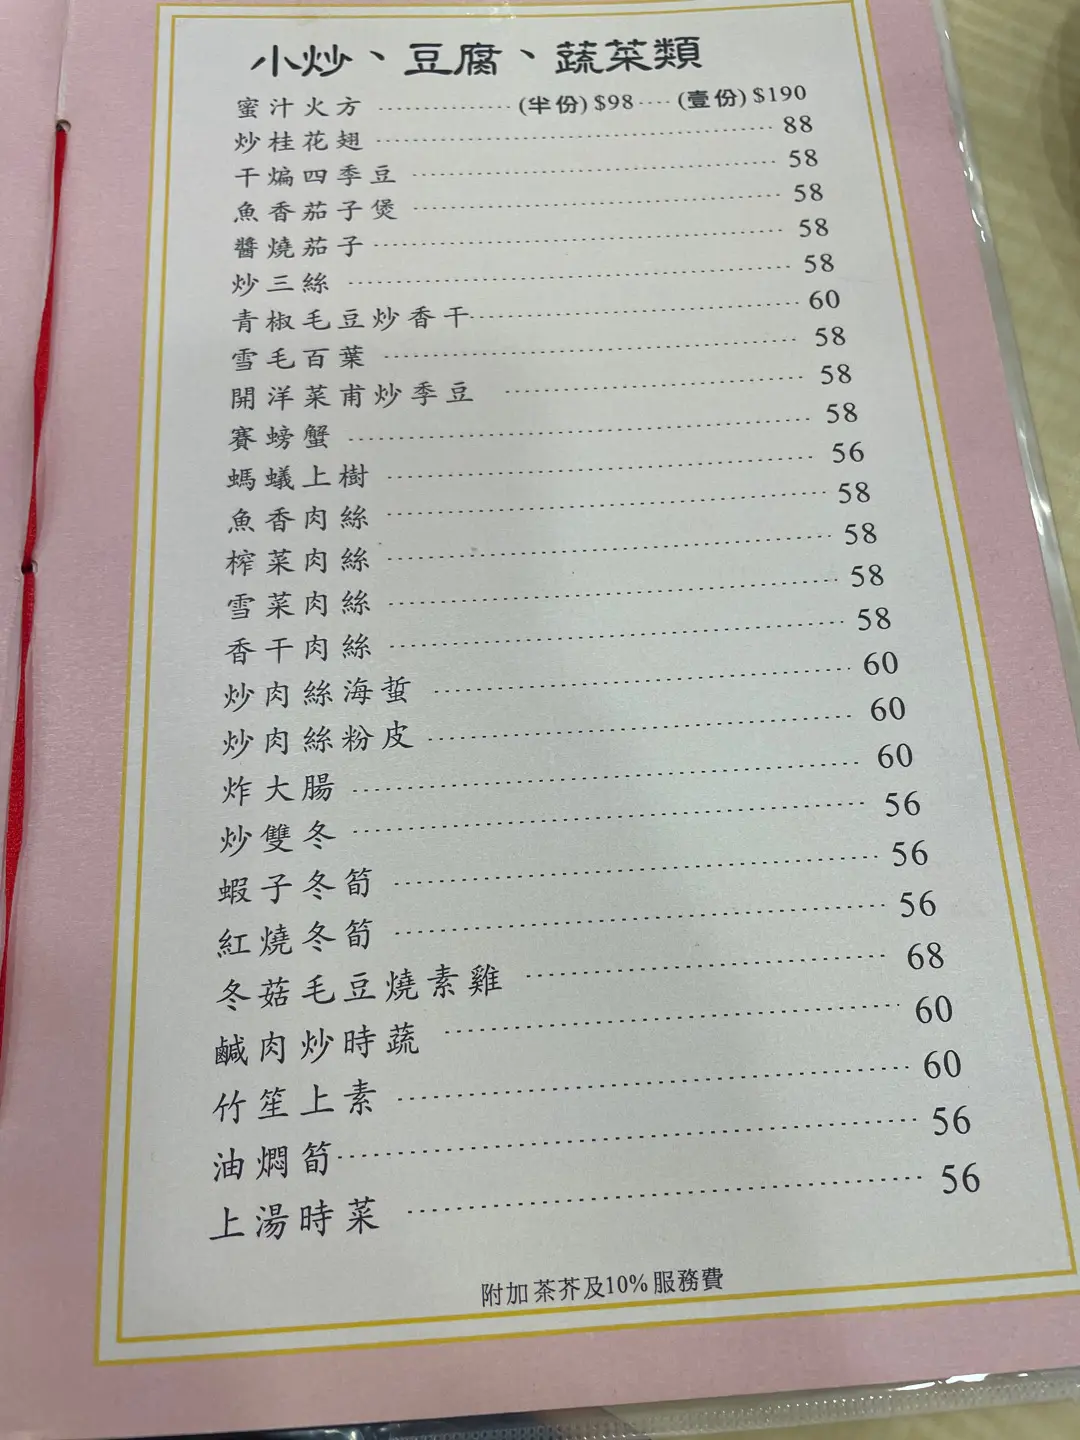 小炒、豆腐、蔬菜類
蜜汁火方 ················ (半份) $98 ···· (壹份) $190
炒桂花翅 ················ 88
干煸四季豆 ················ 58
魚香茄子煲 ················ 58
醬燒茄子 ················ 58
炒三絲 ················ 58
青椒毛豆炒香干 ················ 60
雪毛百葉 ················ 58
開洋菜甫炒季豆 ················ 58
賽螃蟹 ················ 58
螞蟻上樹 ················ 56
魚香肉絲 ················ 58
榨菜肉絲 ················ 58
雪菜肉絲 ················ 58
香干肉絲 ················ 58
炒肉絲海蜇 ················ 60
炒肉絲粉皮 ················ 60
炸大腸 ················ 60
炒雙冬 ················ 56
蝦子冬筍 ················ 56
紅燒冬筍 ················ 56
冬菇毛豆燒素雞 ················ 68
鹹肉炒時蔬 ················ 60
竹笙上素 ················ 60
油燜筍 ················ 56
上湯時菜 ················ 56
附加茶芥及10%服務費